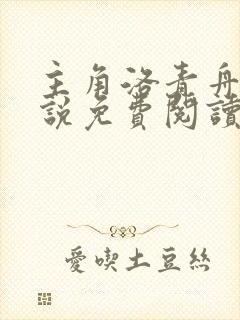 主角洛青舟
說免費閱讀
愛喫土豆絲